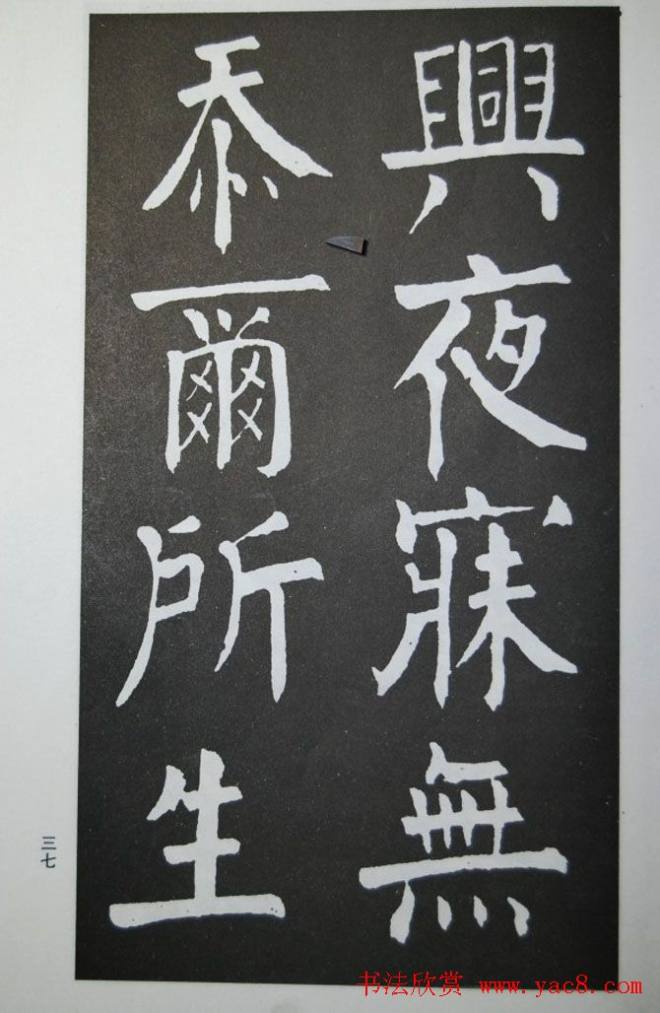 興夜寐無
忝爾所生
三七
书法欣赏 www.yac8.com